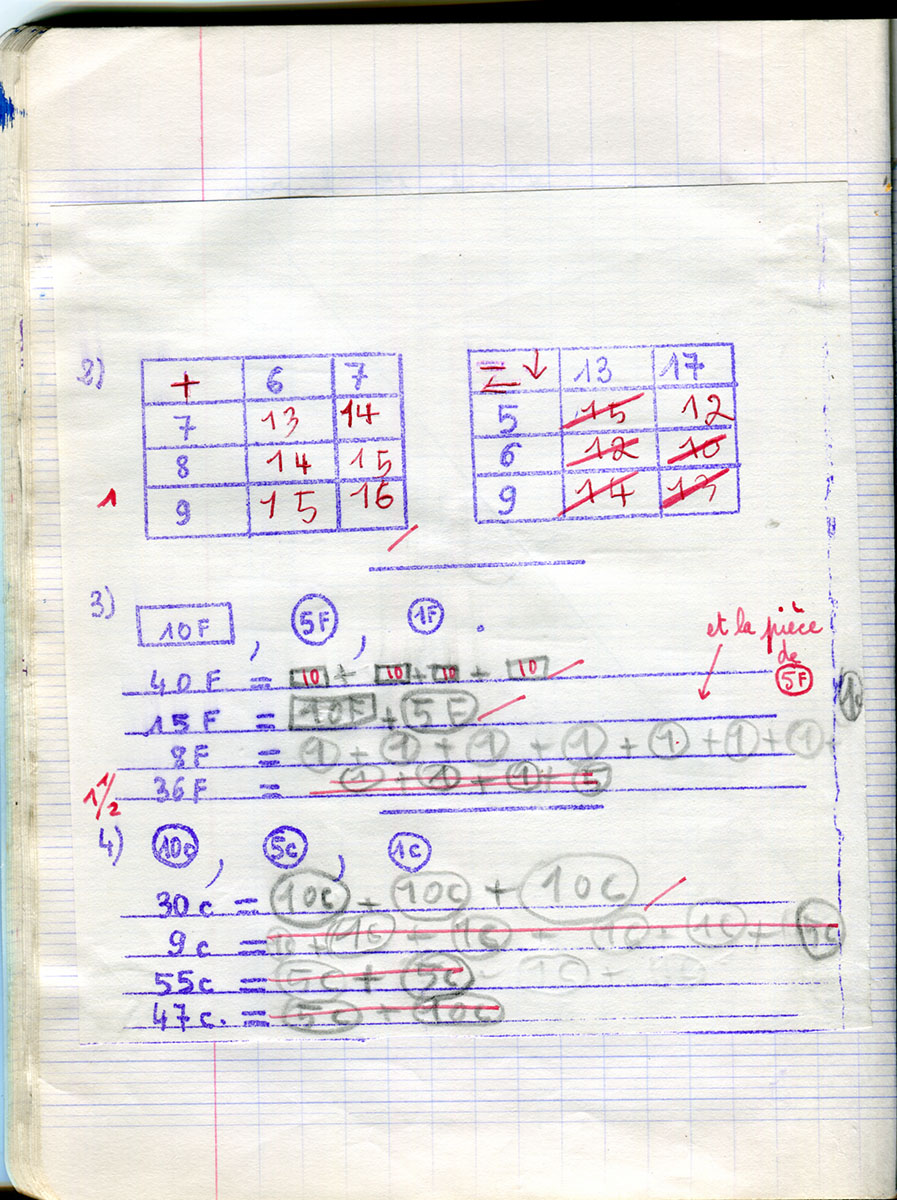 2)
+ 6 7
7 13 14
8 14 15
9 15 16
1
− ↓ 13 17
5 15 12
6 12 10
9 14 13
3) 10F , 5F , 1F .
et la pièce
de
5F
40F = 10 + 10 + 10 + 10
15F = 10F + 5F
8F = 1 + 1 + 1 + 1 + 1 + 1 + 1 +
36F = 1 + 1 + 1 + 5
1 1/2
4) 10c , 5c , 1c
30c = 10c + 10c + 10c
9c = 1c + 1c + 1c + 1c + 1c + 5c
55c = 5c + 5c
47c. = 5c + 10c